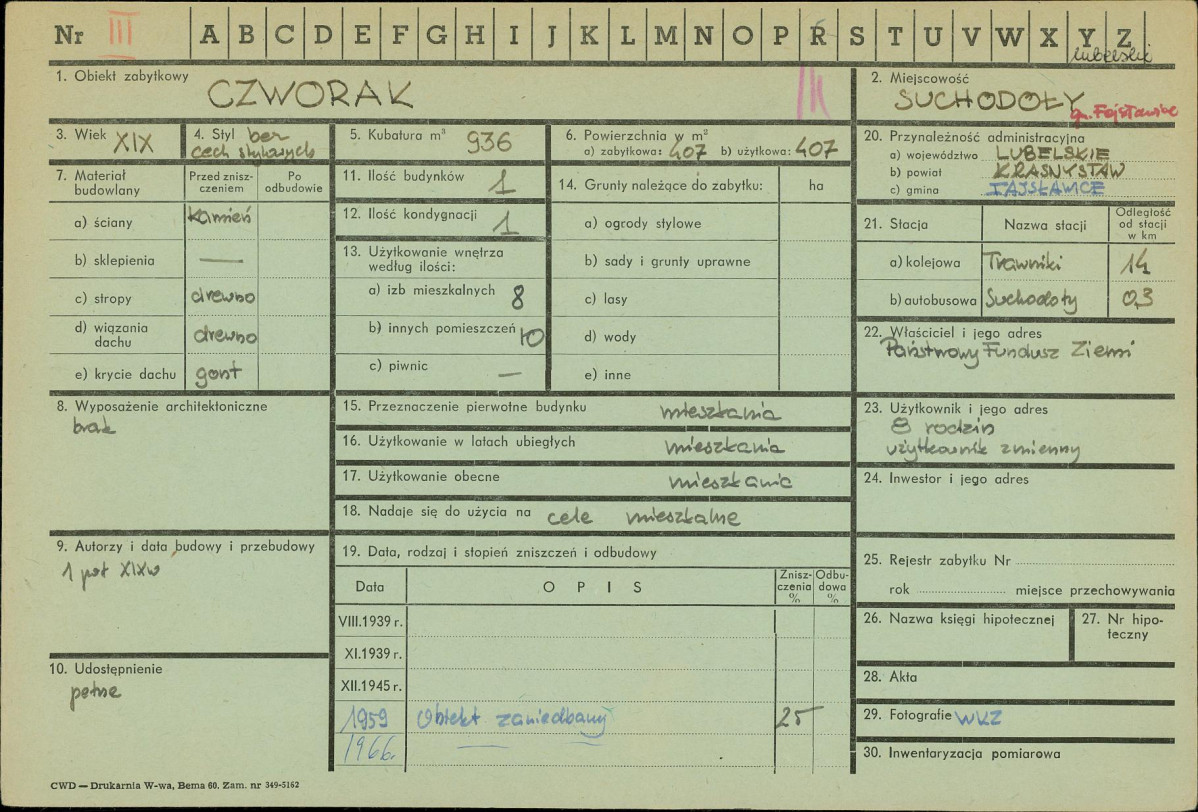 Nr III A B C D E F G H I J K L M N O P R S T U V W X Y Z
lubelskie
1. Obiekt zabytkowy
CZWORAK
III
2. Miejscowość
SUCHODOŁY
gm. Fajsławice
3. Wiek XIX
4. Styl bez
cech stylowych
5. Kubatura m³ 936
6. Powierzchnia w m²
a) zabytkowa: 407 b) użytkowa: 407
7. Materiał budowlany
Przed zniszczeniem
Po odbudowie
a) ściany kamień
b) sklepienia —
c) stropy drewno
d) wiązania dachu drewno
e) krycie dachu gont
8. Wyposażenie architektoniczne
brak
9. Autorzy i data budowy i przebudowy
1 poł XIXw
10. Udostępnienie
pełne
11. Ilość budynków 1
12. Ilość kondygnacji 1
13. Użytkowanie wnętrza
według ilości:
a) izb mieszkalnych 8
b) innych pomieszczeń 10
c) piwnic —
14. Grunty należące do zabytku: ha
a) ogrody stylowe
b) sady i grunty uprawne
c) lasy
d) wody
e) inne
15. Przeznaczenie pierwotne budynku mieszkania
16. Użytkowanie w latach ubiegłych mieszkania
17. Użytkowanie obecne mieszkania
18. Nadaje się do użycia na cele mieszkalne
19. Data, rodzaj i stopień zniszczeń i odbudowy
Data OPIS Zniszczenia % Odbudowa %
VIII.1939 r.
XI.1939 r.
XII.1945 r.
1959 Obiekt zaniedbany 25
1966.
20. Przynależność administracyjna
a) województwo LUBELSKIE
b) powiat KRASNYSTAW
c) gmina FAJSŁAWICE
21. Stacja Nazwa stacji Odległość od stacji w km
a) kolejowa Trawniki 14
b) autobusowa Suchodoły 0,3
22. Właściciel i jego adres
Państwowy Fundusz Ziemi
23. Użytkownik i jego adres
8 rodzin
użytkownik zmienny
24. Inwestor i jego adres
25. Rejestr zabytku Nr
rok miejsce przechowywania
26. Nazwa księgi hipotecznej
27. Nr hipoteczny
28. Akta
29. Fotografie WKZ
30. Inwentaryzacja pomiarowa
CWD — Drukarnia W-wa, Bema 60. Zam. nr 349-5162